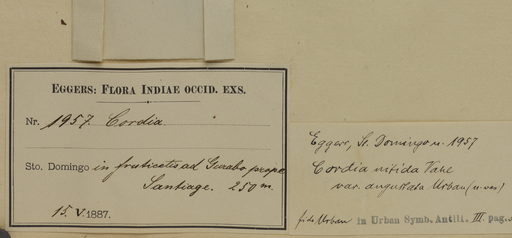 EGGERS: FLORA INDIAE OCCID. EXS.
Nr. 1957. Cordia
Sto. Domingo in fruticetis ad Gurabo prope
Santiago. 250 m.
15. V. 1887.
Eggers, St. Domingo n. 1957
Cordia nitida Vahl
var. angustata Urban (n. var.)
fide Urban in Urban Symb. Antill. III. pag.